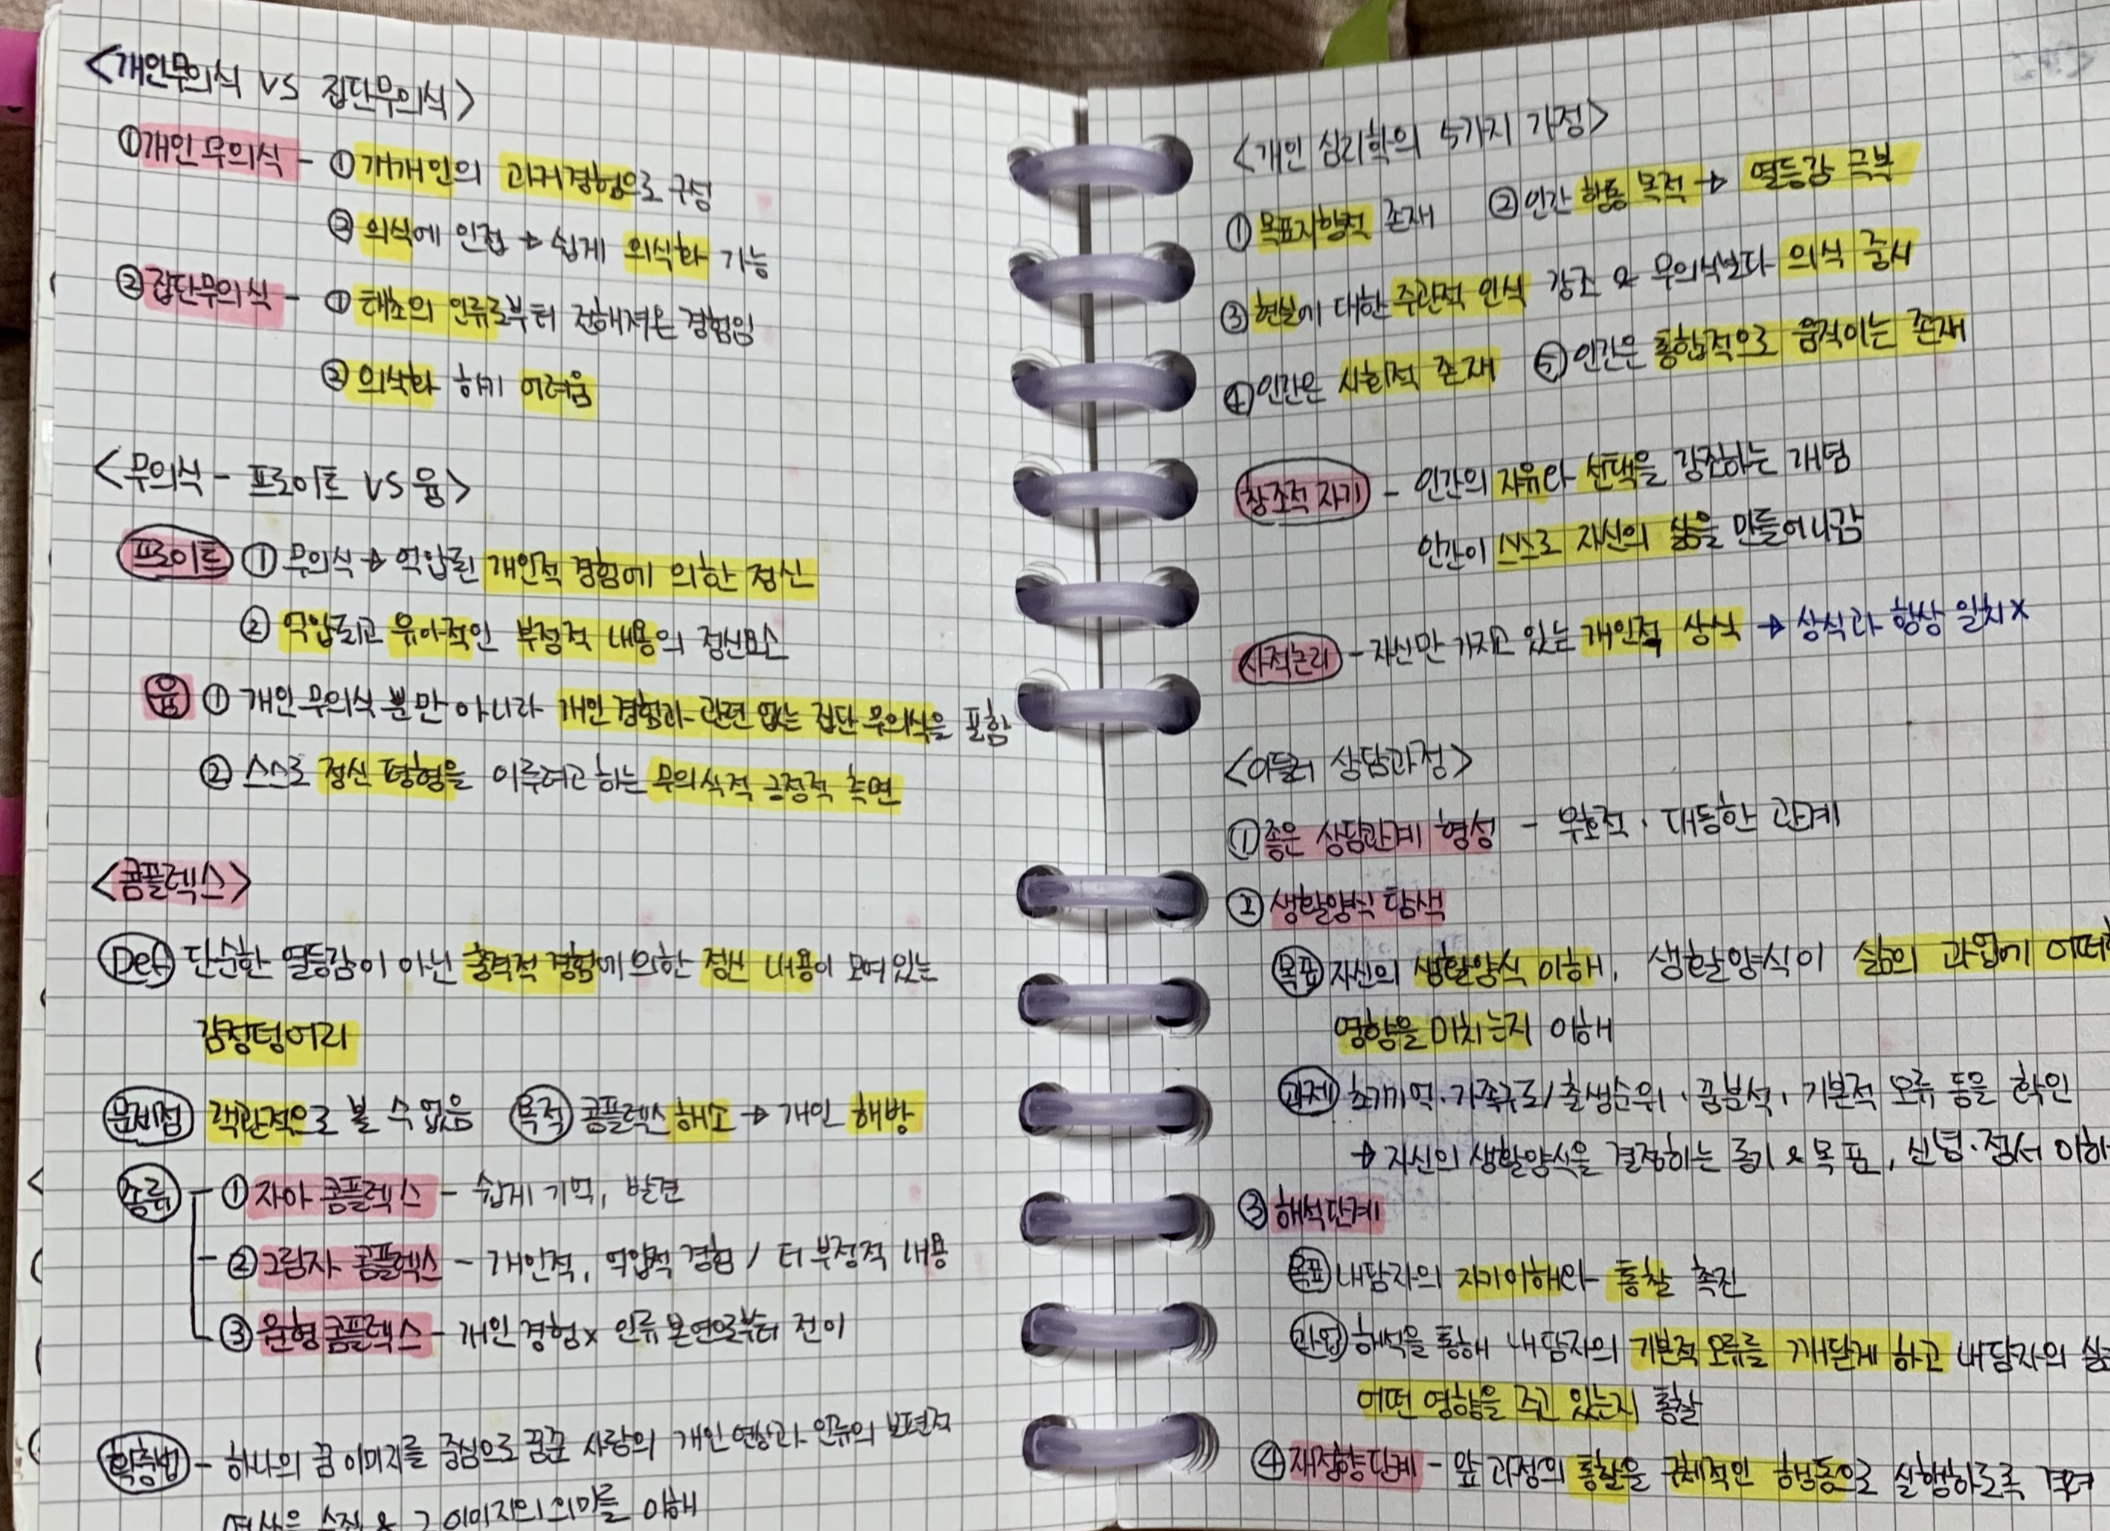 <개인무의식 VS 집단무의식>
①개인 무의식 - ① 개개인의 과거경험으로 구성
② 의식에 인접 → 쉽게 의식화 가능
② 집단무의식 - ① 태초의 인류로부터 전해져온 경험임
② 의식화 하기 어려움
<무의식 - 프로이트 VS 융>
프로이트 ① 무의식 → 억압된 개인적 경험에 의한 정신
② 억압되고 유아적인 부정적 내용의 정신요소
융 ① 개인 무의식 뿐만 아니라 개인 경험과 관련 없는 집단 무의식을 포함
② 스스로 정신 평형을 이루려고 하는 무의식적 긍정적 측면
<콤플렉스>
Def 단순한 열등감이 아닌 충격적 경험에 의한 정신 내용이 모여 있는
감정덩어리
문제점 객관적으로 볼 수 없음 목적 콤플렉스 해소 → 개인 해방
종류 ① 자아 콤플렉스 - 쉽게 기억, 발견
② 그림자 콤플렉스 - 개인적, 억압적 경험 / 더 부정적 내용
③ 원형 콤플렉스 - 개인 경험x 인류 본연으로부터 전이
확충법 - 하나의 꿈 이미지를 중심으로 꿈꾼 사람의 개인 연상과 인류의 보편적
연상을 수집 & 그 이미지의 의미를 이해
<개인 심리학의 5가지 가정>
① 목표지향적 존재 ② 인간 행동 목적 → 열등감 극복
③ 현실에 대한 주관적 인식 강조 & 무의식보다 의식 중시
④ 인간은 사회적 존재 ⑤ 인간은 통합적으로 움직이는 존재
창조적 자기 - 인간의 자유와 선택을 강조하는 개념
인간이 스스로 자신의 삶을 만들어나감
사적논리 - 자신만 가지고 있는 개인적 상식 → 상식과 항상 일치x
<아들러 상담과정>
① 좋은 상담관계 형성 - 우호적 · 대등한 관계
② 생활양식 탐색
목표 자신의 생활양식 이해, 생활양식이 삶의 과업에 어떠한
영향을 미치는지 이해
과제 초기기억 · 가족구도/출생순위 · 꿈분석 · 기본적 오류 등을 확인
→ 자신의 생활양식을 결정하는 동기 & 목표, 신념 · 정서 이해
③ 해석단계
목표 내담자의 자기이해와 통찰 촉진
과업 해석을 통해 내담자의 기본적 오류를 깨닫게 하고 내담자의 삶
어떤 영향을 주고 있는지 통찰
④ 재정향단계 - 앞 과정의 통찰을 구체적인 행동으로 실행하도록 격려